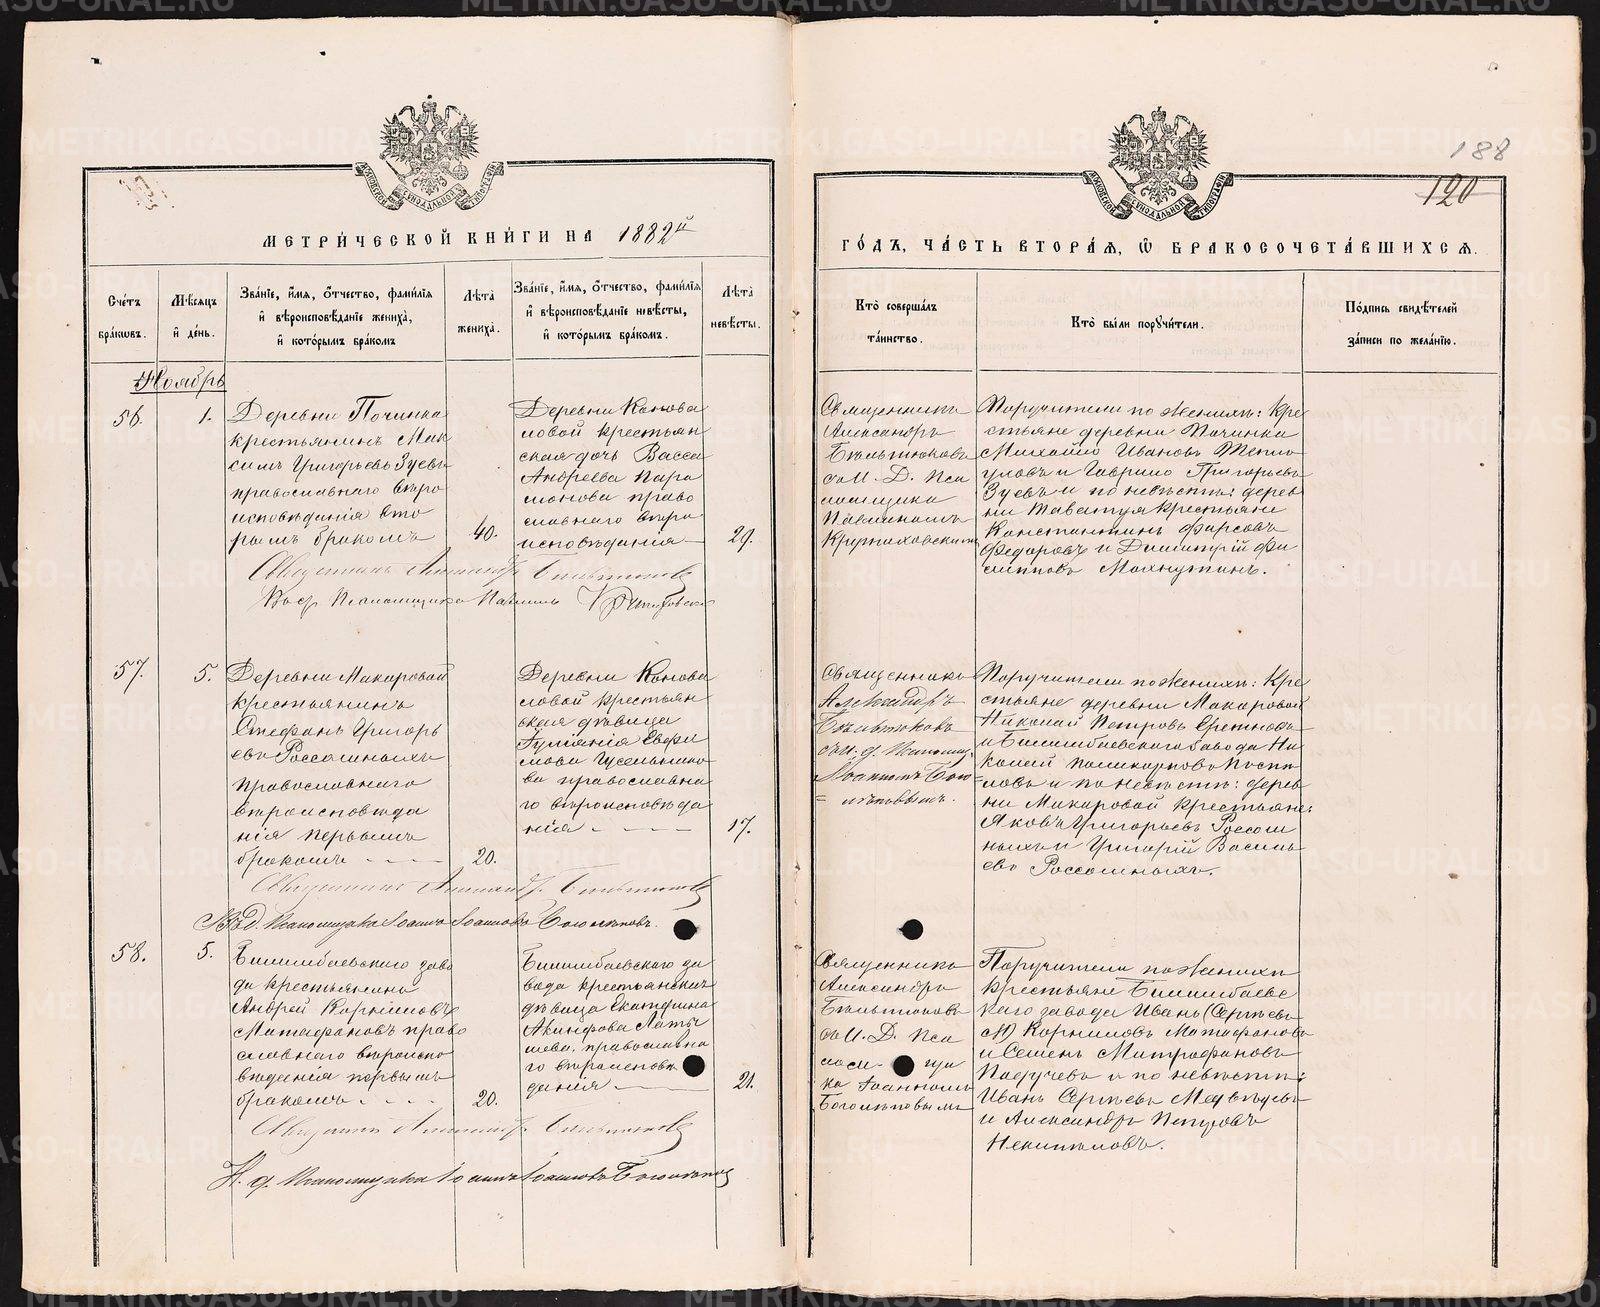 188
120
МЕТРИ́ЧЕСКОЙ КНИ́ГИ НА 1882й
ГО́ДЪ, ЧА́СТЬ ВТОРА́Я, Ѿ БРАКОСОЧЕТА́ВШИХСЯ.
Сче́тъ
бра́ковъ.
Мѣ́сяцъ
и҆ де́нь.
Зва́нїе, и҆́мя, ѻ҆́тчество, фами́лїя
и҆ вѣроисповѣ́данїе жениха̀,
и҆ кото́рымъ бра́комъ
Лѣ́та
жениха̀.
Зва́нїе, и҆́мя, ѻ҆́тчество, фами́лїя
и҆ вѣроисповѣ́данїе невѣ́сты,
и҆ кото́рымъ бра́комъ.
Лѣ́та
невѣ́сты.
Кто̀ соверша́лъ
та́инство.
Кто̀ бы́ли порꙋчи́тели.
По́дпись свидѣ́телей
за́писи по жела́нїю.
Ноябрь
56.
1.
Деревни Починка
крестьянинъ Мак
симъ Григорьевъ Зуевъ
православнаго вѣро
исповѣданія вто
рымъ бракомъ
40.
Деревни Конова
ловой крестьян
ская дочь Васса
Андреева Пара
монова право
славнаго вѣро
исповѣданія
29.
Священникъ
Александръ
Бѣльтюковъ
съ И. Д. Пса
ломщика
Павлиномъ
Поручители по женихѣ: Кре
стьяне деревни Починка
Михайло Ивановъ Тепло
уховъ и Гаврило Григорьевъ
Зуевъ и по невѣстѣ: дерев
ни Таватуя крестьяне
Константинъ
Федоровъ и Димитрій Фи
липповъ Махнутинъ.
Священникъ Александръ Бѣльтюковъ
57.
5.
Деревни Макаровой
крестьянинъ
Стефанъ Григорь
евъ Россошныхъ
православнаго
вѣроисповѣда
нія первымъ
бракомъ
20.
Деревни Конова
ловой крестьян
ская дѣвица
Іуліанія Евфи
мова Гусельнико
ва православна
го вѣроисповѣда
нія
17.
Священникъ
Александръ
Бѣльтюковъ
съ и. д. Псаломщ.
Іоанномъ Бого
лѣповымъ.
Поручители по женихѣ: Кре
стьяне деревни Макаровой
Николай Петровъ
и Билимбаевскаго завода Ни
колай Поликарповъ Поспѣ
ловъ и по невѣстѣ: дерев
ни Макаровой крестьяне:
Яковъ Григорьевъ Россош
ныхъ и Григорій Василь
евъ Россошныхъ.
Священникъ Александръ Бѣльтюковъ
И. Д. Псаломщика Іоаннъ Іоанновъ Боголѣповъ.
58.
5.
Билимбаевскаго заво
да крестьянинъ
Андрей Корниловъ
Матафановъ право
славнаго вѣроиспо
вѣданія первымъ
бракомъ
20.
Билимбаевскаго за
вода крестьянская
дѣвица Екатерина
Акинфова Латы
шева, православна
го вѣроисповѣ
данія
21.
Священникъ
Александръ
Бѣльтюковъ
съ И. Д. Пса
ломщи
ка Іоанномъ
Боголѣповымъ
Поручители по женихѣ
крестьяне Билимбаевс
каго завода Иванъ (Сергѣевъ
Корниловъ Матафановъ
и Семенъ Митрофановъ
Падучевъ и по невѣстѣ:
Иванъ Сергѣевъ Медвѣдевъ
и Александръ Петровъ
Некипѣловъ.
Священникъ Александръ Бѣльтюковъ
И. д. Псаломщика Іоаннъ Іоанновъ Боголѣповъ